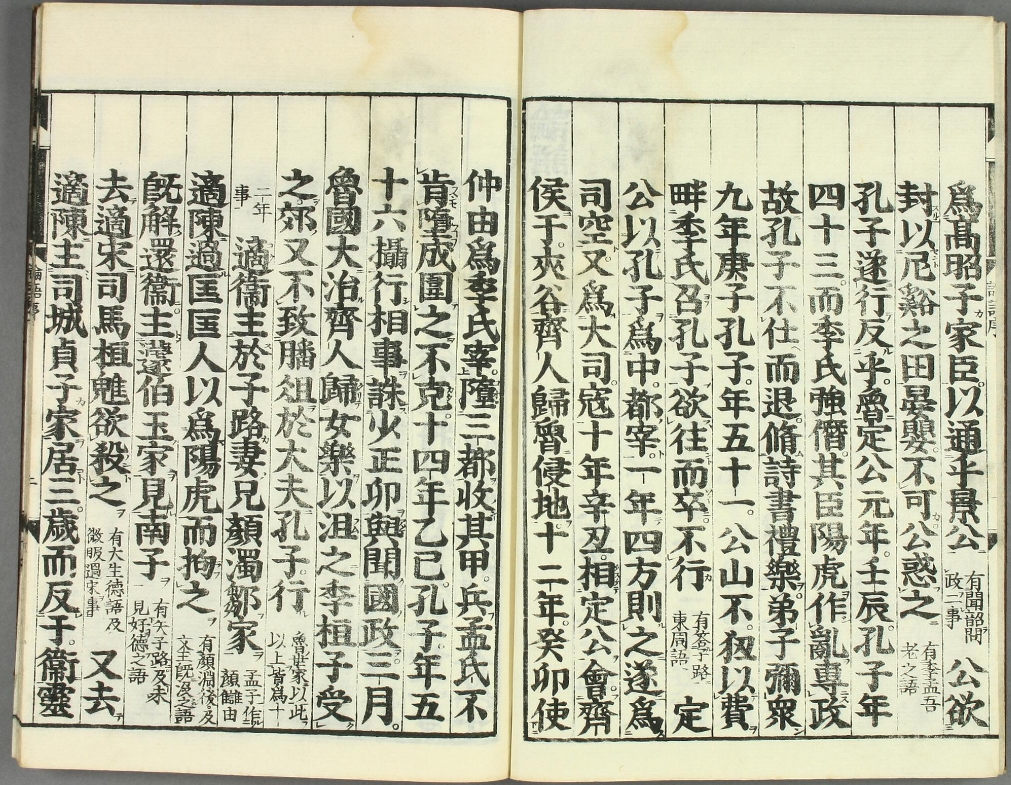 爲髙昭子家臣以通乎景公有聞韶問政二事公欲
封以尼谿之田晏嬰不可公惑之有季孟吾老之語
孔子遂行反乎魯定公元年壬辰孔子年
四十三而季氏強僭其臣陽虎作亂専政
故孔子不仕而退脩詩書禮樂弟子彌衆
九年庚子孔子年五十一公山不狃以費
畔季氏召孔子欲往而卒不行有荅子路東周語定
公以孔子爲中都宰一年四方則之遂爲
司空又爲大司寇十年辛丑相定公會齊
侯于夾谷齊人歸魯侵地十二年癸卯使
仲由爲季氏宰墮三都收其甲兵孟氏不
肯墮成圍之不克十四年乙巳孔子年五
十六攝行相事誅少正卯與聞國政三月
魯國大治齊人歸女樂以沮之季桓子受
之郊又不致膰俎於大夫孔子行魯世家以此以上皆爲十
二年事適衞主於子路妻兄顏濁鄒家孟子作顏讎由
適陳過匡匡人以爲陽虎而拘之有顏淵後及文王旣沒之語
旣解還衞主蘧伯玉家見南子有矢子路及未見好德之語
去適宋司馬桓魋欲殺之有天生德語及微服過宋事又去
適陳主司城貞子家居三歳而反于衞靈